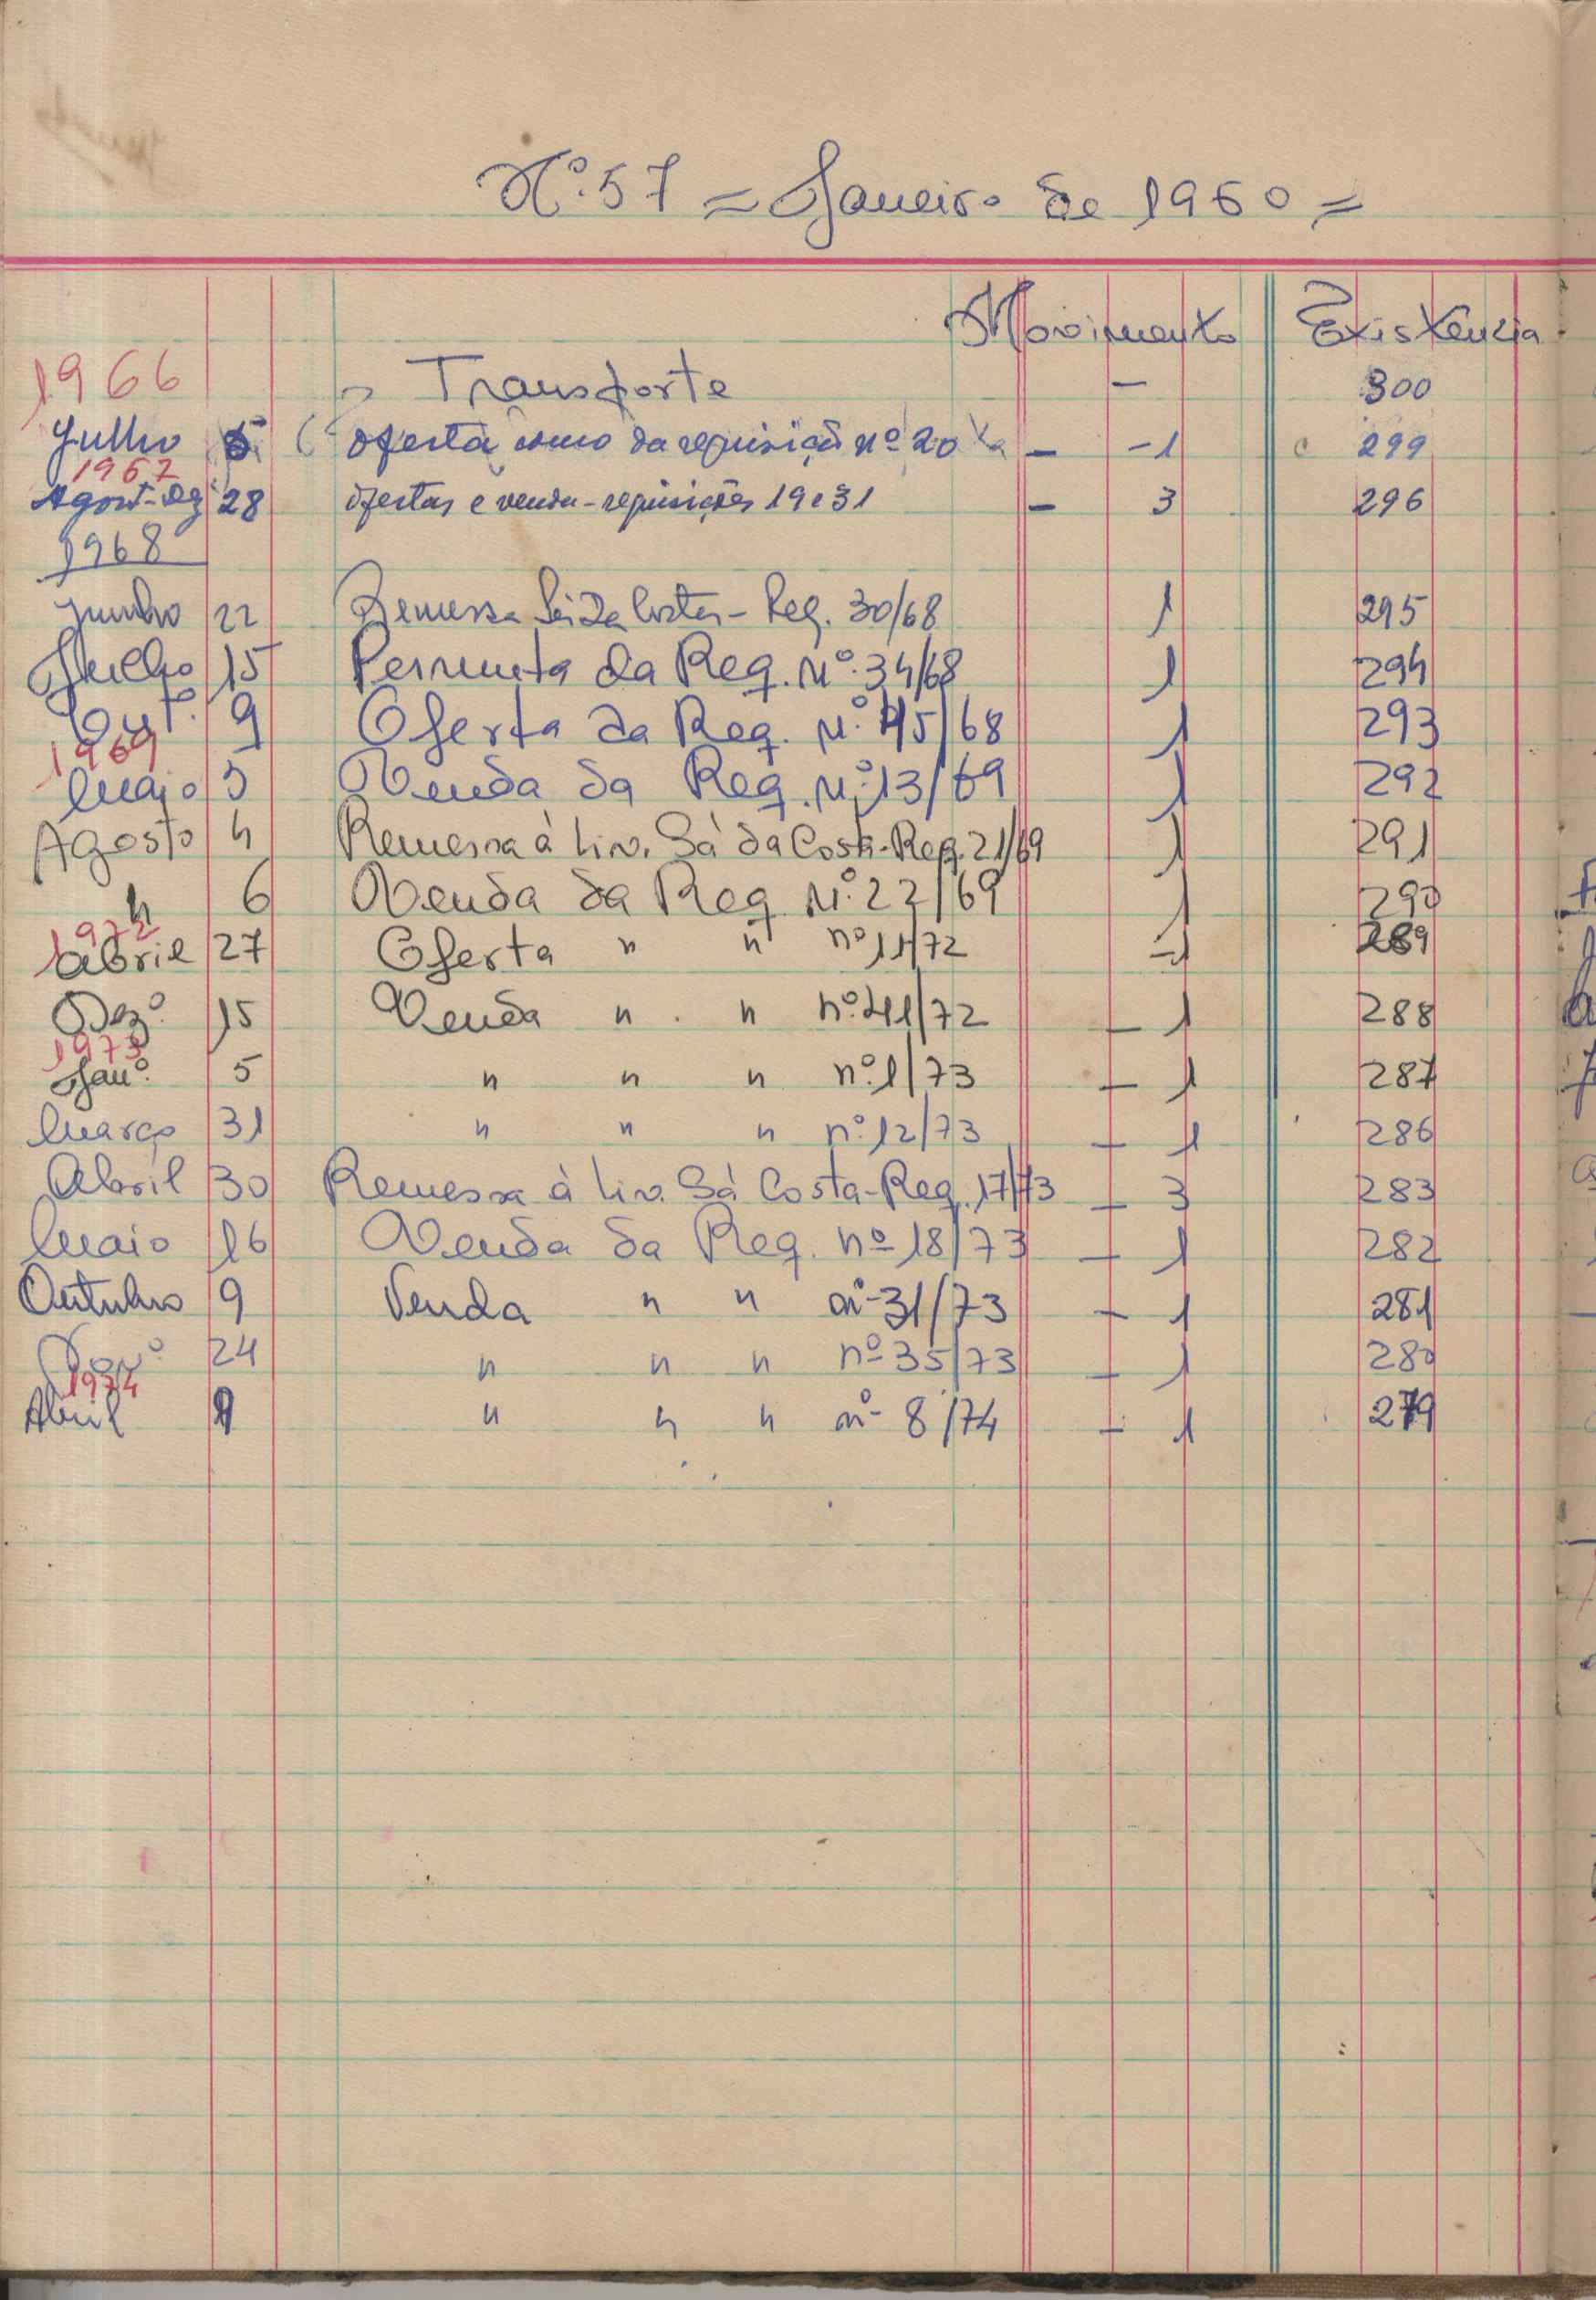 Nº. 57 = Janeiro de 1960 =
Movimento Existência
1966 Transporte — 300
Julho oferta como da requisição nº 20 — -1 299
1967
Agost-Dez 28 ofertas e venda - requisições 19 e 31 — 3 296
1968
Junho 22 Remessa Sá da Costa - Req. 30/68 1 295
Julho 15 Permuta da Req. Nº. 34/68 1 294
Outº. 9 Oferta da Req. Nº. 45/68 1 293
1969
Maio 5 Venda da Req. Nº. 13/69 1 292
Agosto 4 Remessa à Liv. Sá da Costa - Req. 21/69 1 291
" 6 Venda da Req. Nº. 22/69 1 290
1972
Abril 27 Oferta " " nº 11/72 -1 289
Dezº. 15 Venda " " nº. 41/72 — 1 288
1973
Janº. 5 " " " nº. 1/73 — 1 287
Março 31 " " " nº. 12/73 — 1 286
Abril 30 Remessa à Liv. Sá Costa - Req. 17/73 — 3 283
Maio 16 Venda da Req. nº 18/73 — 1 282
Outubro 9 Venda " " nº 31/73 — 1 281
Novº. 24 " " " nº 35/73 — 1 280
1974
Abril " " " nº 8/74 — 1 279